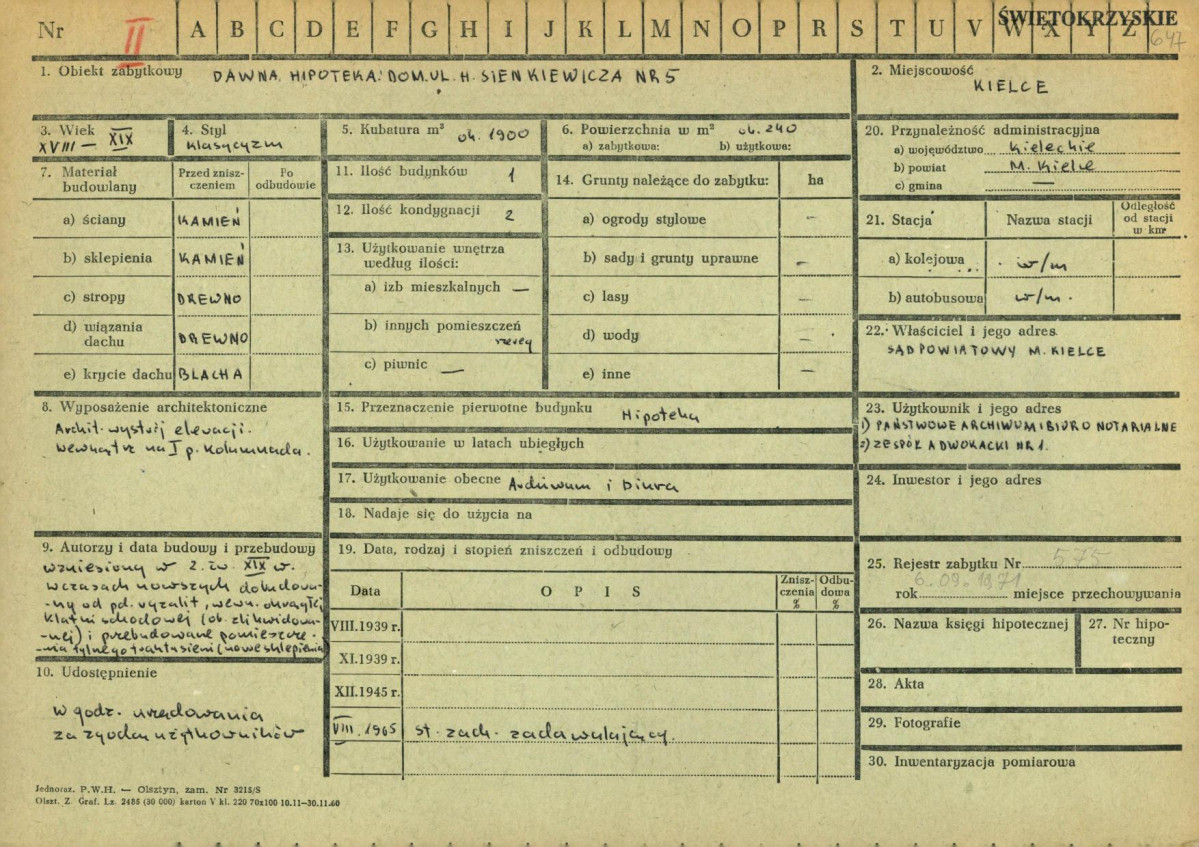 Nr II A B C D E F G H I J K L M N O P R S T U V W X Y Z
ŚWIĘTOKRZYSKIE
647
1. Obiekt zabytkowy DAWNA HIPOTEKA. DOM. UL. H. SIENKIEWICZA NR 5
2. Miejscowość
KIELCE
3. Wiek
XVIII — XIX
4. Styl
klasycyzm
5. Kubatura m³ ok. 1900
6. Powierzchnia w m² ok. 240
a) zabytkowa: b) użytkowa:
7. Materiał budowlany
Przed zniszczeniem
Po odbudowie
a) ściany KAMIEŃ
b) sklepienia KAMIEŃ
c) stropy DREWNO
d) wiązania dachu DREWNO
e) krycie dachu BLACHA
8. Wyposażenie architektoniczne
Archit. wystrój elewacji.
wewnątrz na I p. kolumnada.
9. Autorzy i data budowy i przebudowy
wzniesiony w 2. ćw. XIX w.
w czasach nowszych dobudowa-
-ny od pd. ryzalit, wewn. okrągłej
klatki schodowej (ob. zlikwidowa-
-nej) i przebudowane pomieszcze-
-nia tylnego traktu sieni (nowe sklepienia)
10. Udostępnienie
w godz. urzędowania
za zgodą użytkowników
11. Ilość budynków 1
12. Ilość kondygnacji 2
13. Użytkowanie wnętrza
według ilości:
a) izb mieszkalnych —
b) innych pomieszczeń
c) piwnic —
14. Grunty należące do zabytku: ha
a) ogrody stylowe —
b) sady i grunty uprawne —
c) lasy —
d) wody —
e) inne —
15. Przeznaczenie pierwotne budynku Hipoteka
16. Użytkowanie w latach ubiegłych
17. Użytkowanie obecne Archiwum i biura
18. Nadaje się do użycia na
19. Data, rodzaj i stopień zniszczeń i odbudowy
Data O P I S Zniszczenia % Odbudowa %
VIII.1939 r.
XI.1939 r.
XII.1945 r.
VIII. 1965 st. zach. zadawalający.
20. Przynależność administracyjna
a) województwo Kieleckie
b) powiat M. Kielce
c) gmina —
21. Stacja Nazwa stacji Odległość od stacji w km
a) kolejowa w/m
b) autobusowa w/m.
22. Właściciel i jego adres
SĄD POWIATOWY M. KIELCE
23. Użytkownik i jego adres
1) PAŃSTWOWE ARCHIWUM I BIURO NOTARIALNE
2) ZESPÓŁ ADWOKACKI NR 1.
24. Inwestor i jego adres
25. Rejestr zabytku Nr 575
6.09.1971
rok miejsce przechowywania
26. Nazwa księgi hipotecznej
27. Nr hipo-
teczny
28. Akta
29. Fotografie
30. Inwentaryzacja pomiarowa
Jednoraz. P.W.H. — Olsztyn, zam. Nr 3215/S
Olszt. Z. Graf. Lz. 2485 (30 000) karton V kl. 220 70x100 10.11—30.11.60